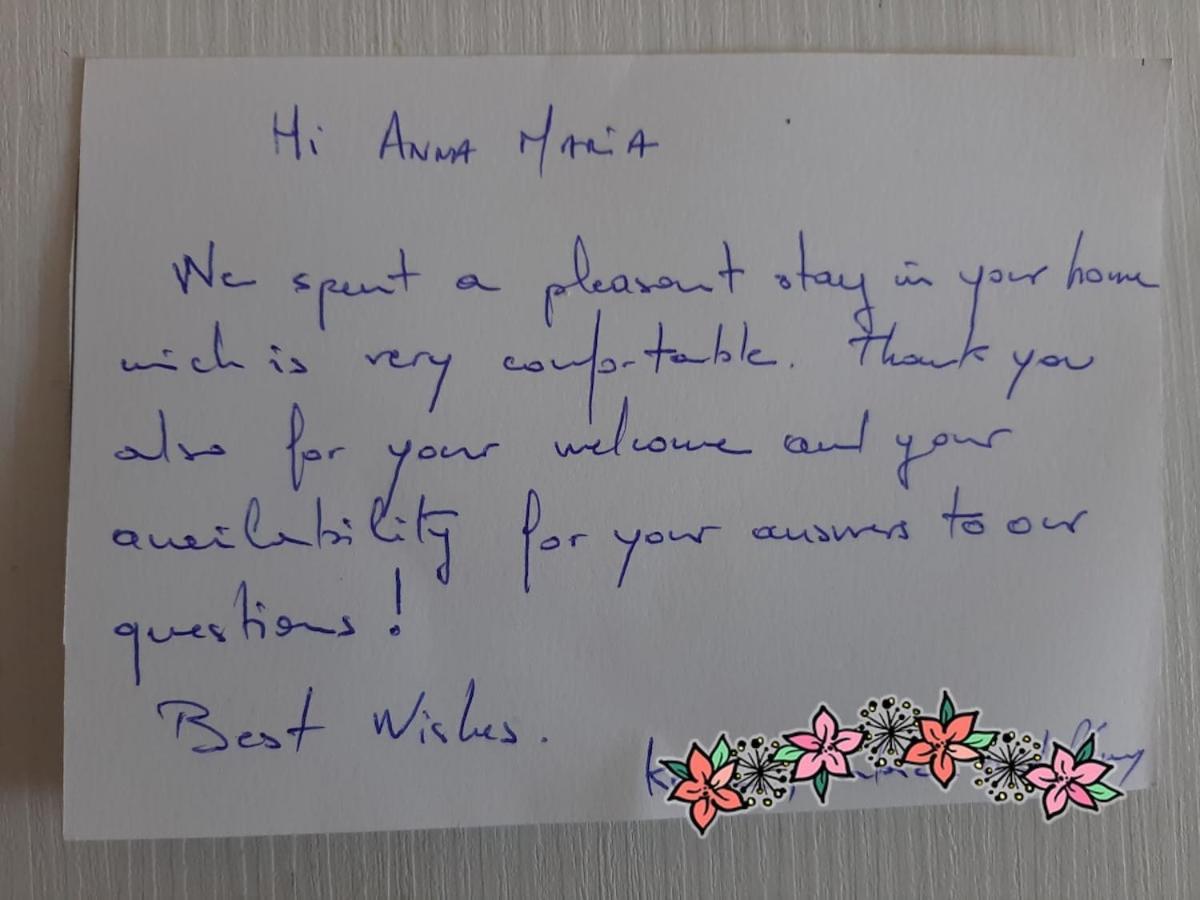 Hi ANNA MARiA
We spent a pleasant stay in your home
wich is very confortable. Thank you
also for your welcome and your
availability for your answers to our
questions!
Best Wishes.